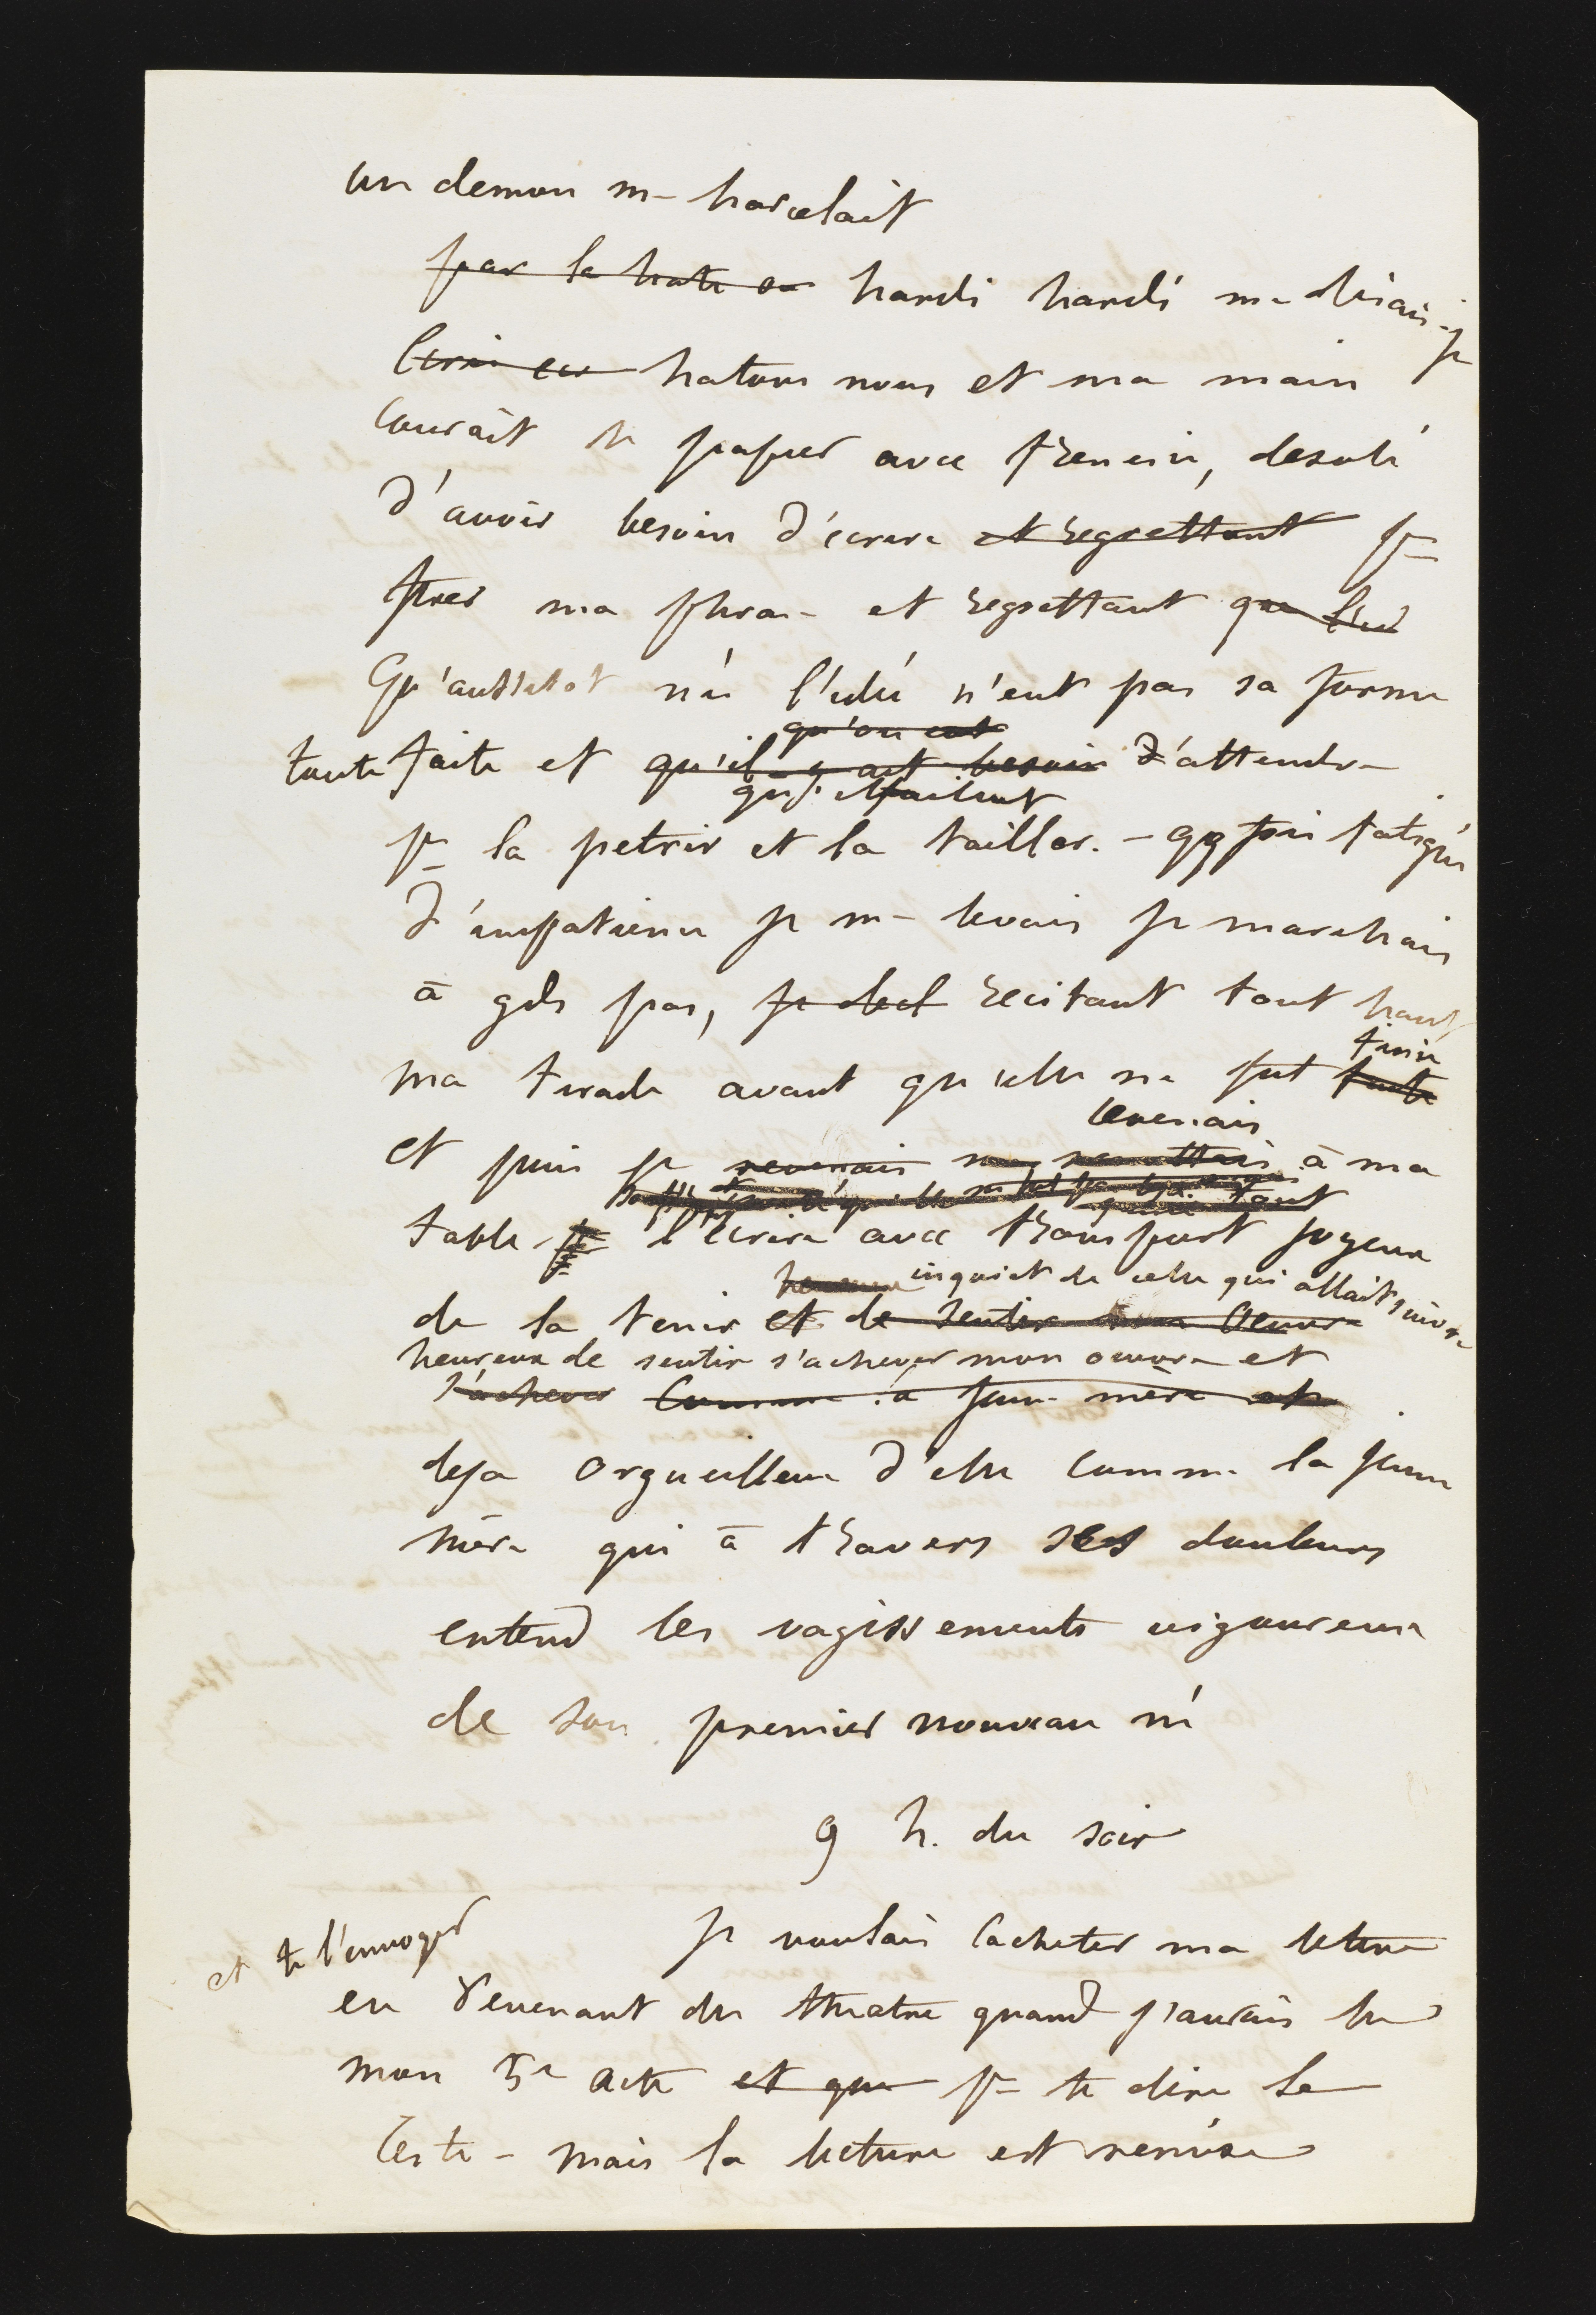 un demon me harcelait
par la hate en hardi hardi me disais-je
hatons nous et ma main
courait le papier avec frenesie, desolé
d'avoir besoin d'ecrire et regrettant pr
fixer ma phrase et regrettant que
Qu'aussitot née l'idée n'eut pas sa forme
qu'on eut
toute faite et qu'il y ait besoin d'attendre
qu'il fallut
pr la petrir et la tailler. - qq fois fatigué
d'impatience je me levais je marchais
à gds pas, je decl recitant tout haut
finie
ma tirade avant qu'elle ne fut faite
revenais
et puis je revenais me remettais à ma
table l'ecrire avec transport joyeux
inquiet de celle qui allait suivre
de la tenir et de sentir mon oeuvre
heureux de sentir s'achever mon oeuvre et
s'achever comme la jeune mère et
deja orgueilleux d'elle comme la jeune
mère qui à travers ses douleurs
entend les vagissements vigoureux
de son premier nouveau né
9 h. du soir
et te l'envoyer
je voulais cacheter ma lettre
en revenant du theatre quand j'aurais lu
mon 5e acte et que pr te dire le
reste - mais la lecture est remise